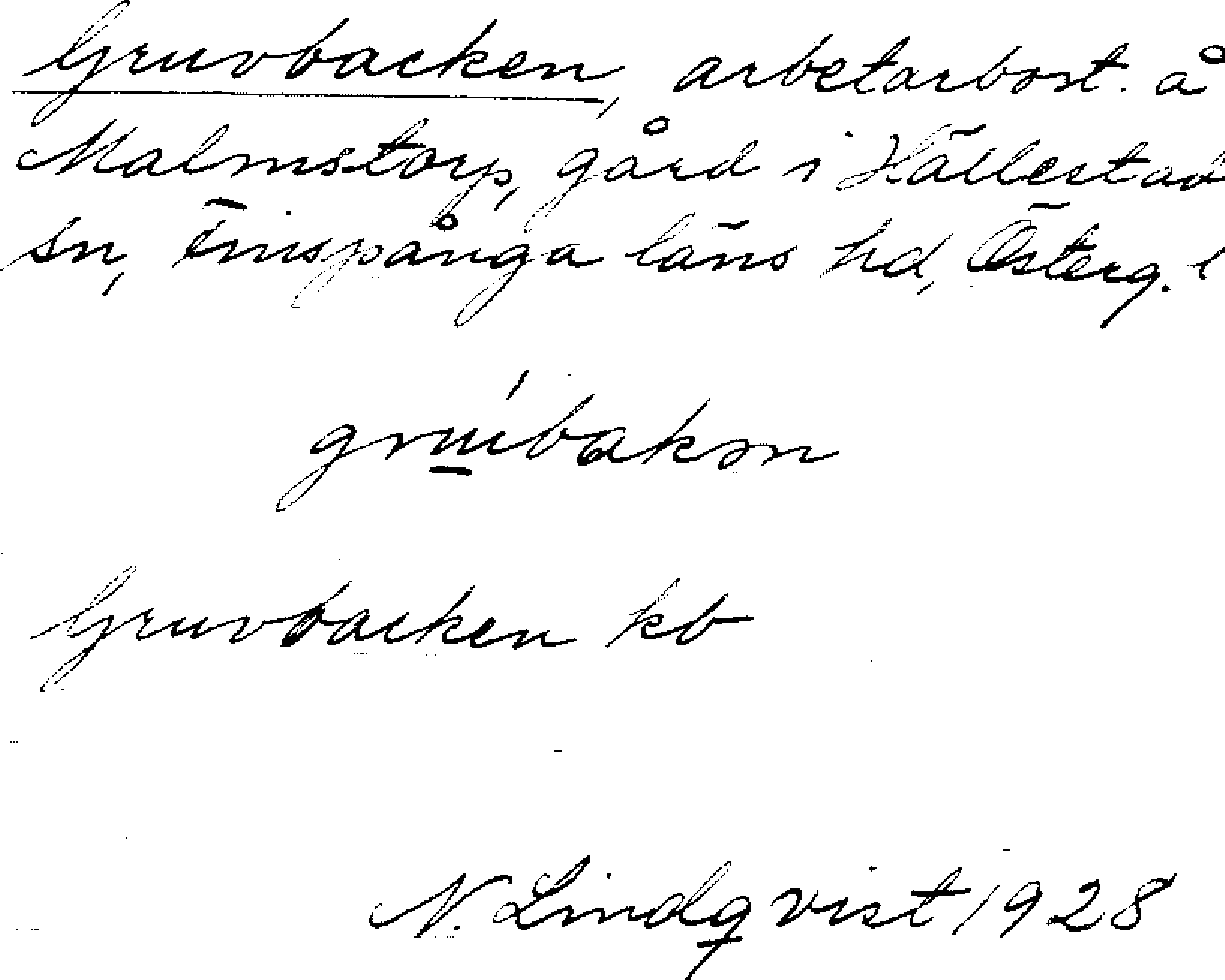 Gruvbacken, arbetarbost. å
Malmstorp, gård i Hällestad
sn, Finspånga läns hd, Österg. l
Gruvbacken kb
N. Lindqvist 1928